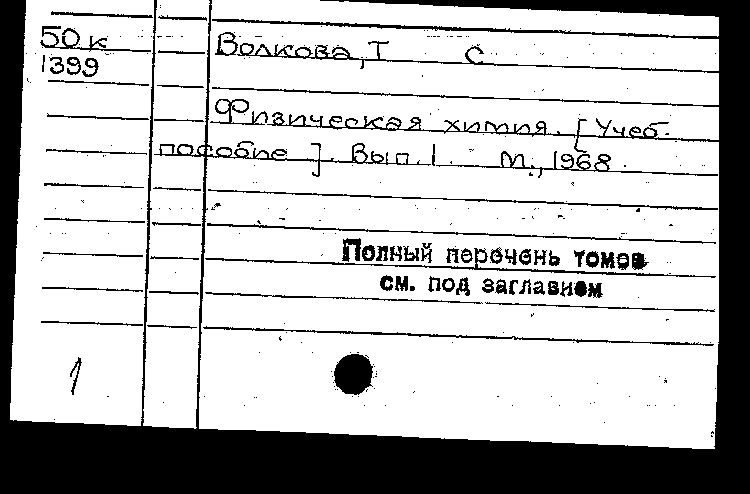 50к Волкова, Т С
1399
Физическая химия. [Учеб.
пособие]. Вып. 1. М., 1968.
Полный перечень томов
см. под заглавием
1